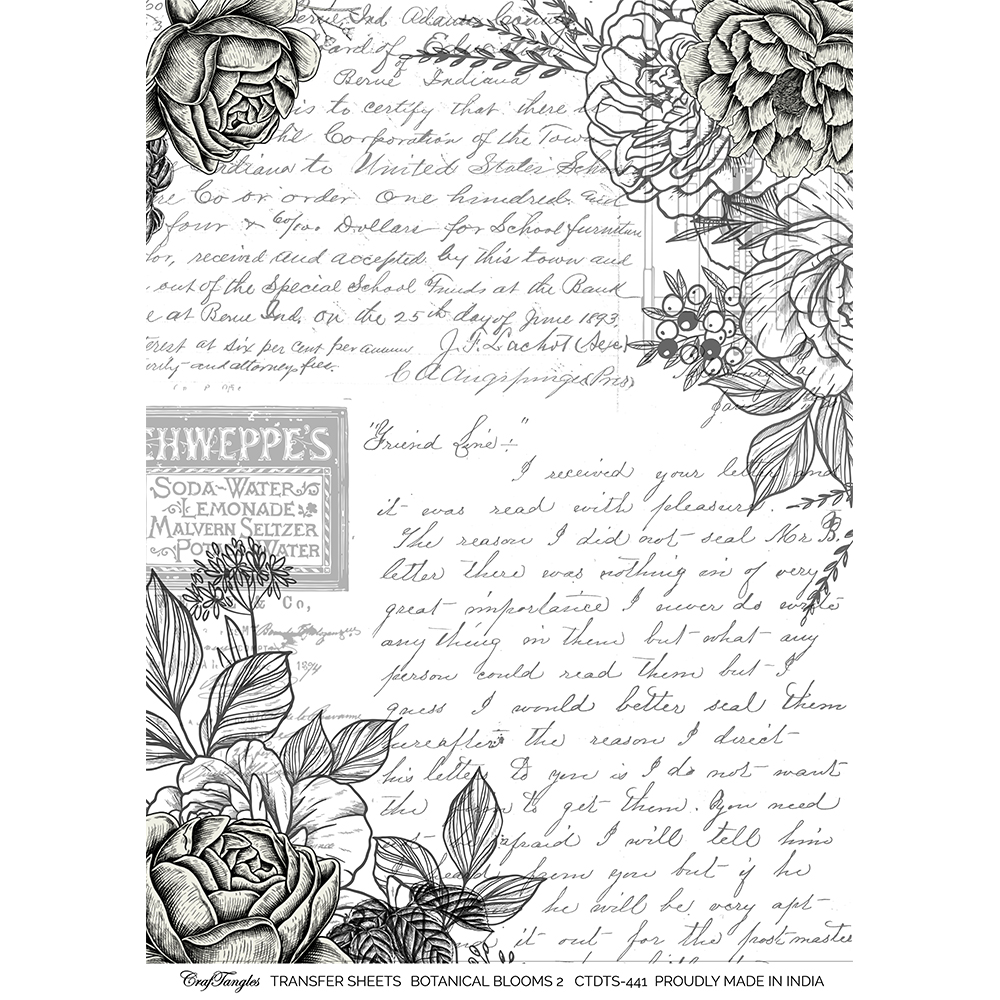 Berne, Ind Adams County
Board of Education
Berne Indiana
is to certify that there is
the Corporation of the Town
Indiana to United States School
Co or order. One hundred and
four & 60/100 Dollars for School furniture
or, received and accepted by this town and
out of the Special School Funds at the Bank
e at Berne Ind. on the 25th day of June 1893.
erest at six per cent per annum
and attorneys fees.
HWEPPE'S
SODA-WATER
LEMONADE
MALVERN SELTZER
POT WATER
& Co,
1894
"Friend Line÷"
I received your letter and
it was read with pleasure.
The reason I did not seal Mr B.
letter there was nothing in of very
great importance I never do write
any thing in them but what any
person could read them but I
guess I would better seal them
hereafter the reason I direct
his letter to you is I do not want
the to get them. You need
afraid I will tell him
from you but if he
he will be very apt
it out for the postmaster
CrafTangles TRANSFER SHEETS BOTANICAL BLOOMS 2 CTDTS-441 PROUDLY MADE IN INDIA